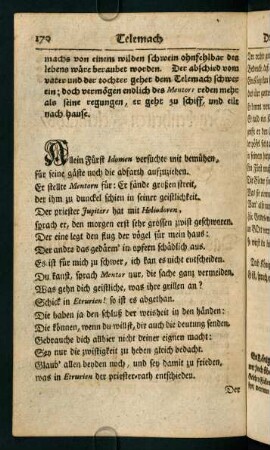 170 Telemach
machs von einem wilden schwein ohnfehlbar des
lebens wäre beraubet worden. Der abschied vom
vater und der tochter gehet dem Telemach schwer
ein; doch vermögen endlich des Mentors reden mehr
als seine regungen, er geht zu schiff, und eilt
nach hause.
Allein Fürst Idomen versuchte mit bemühen,
für seine gäste noch die abfarth aufzuziehen.
Er stellte Mentorn für: Er fände grossen streit,
der ihm zu dunckel schien in seiner geistlichkeit.
Der priester Jupiters hat mit Heliodoren,
sprach er, den morgen erst sehr grossen zwist geschworen.
Der eine legt den flug der vögel für mein haus:
Der andre das gedärm' in opfern schädlich aus.
Es ist für mich zu schwer, ich kan es nicht entscheiden.
Du kanst, sprach Mentor nur, die sache ganz vermeiden.
Was gehn dich geistliche, was ihre grillen an?
Schick in Etrurien! so ist es abgethan.
Die haben ja den schluß der weisheit in den händen:
Die können, wenn du willst, dir auch die deutung senden.
Gebrauche dich allhier nicht deiner eignen macht:
Sey nur die zwistigkeit zu heben gleich bedacht.
Glaub' allen beyden noch, und sey damit zu frieden,
was in Etrurien der priester-rath entschieden.
Der